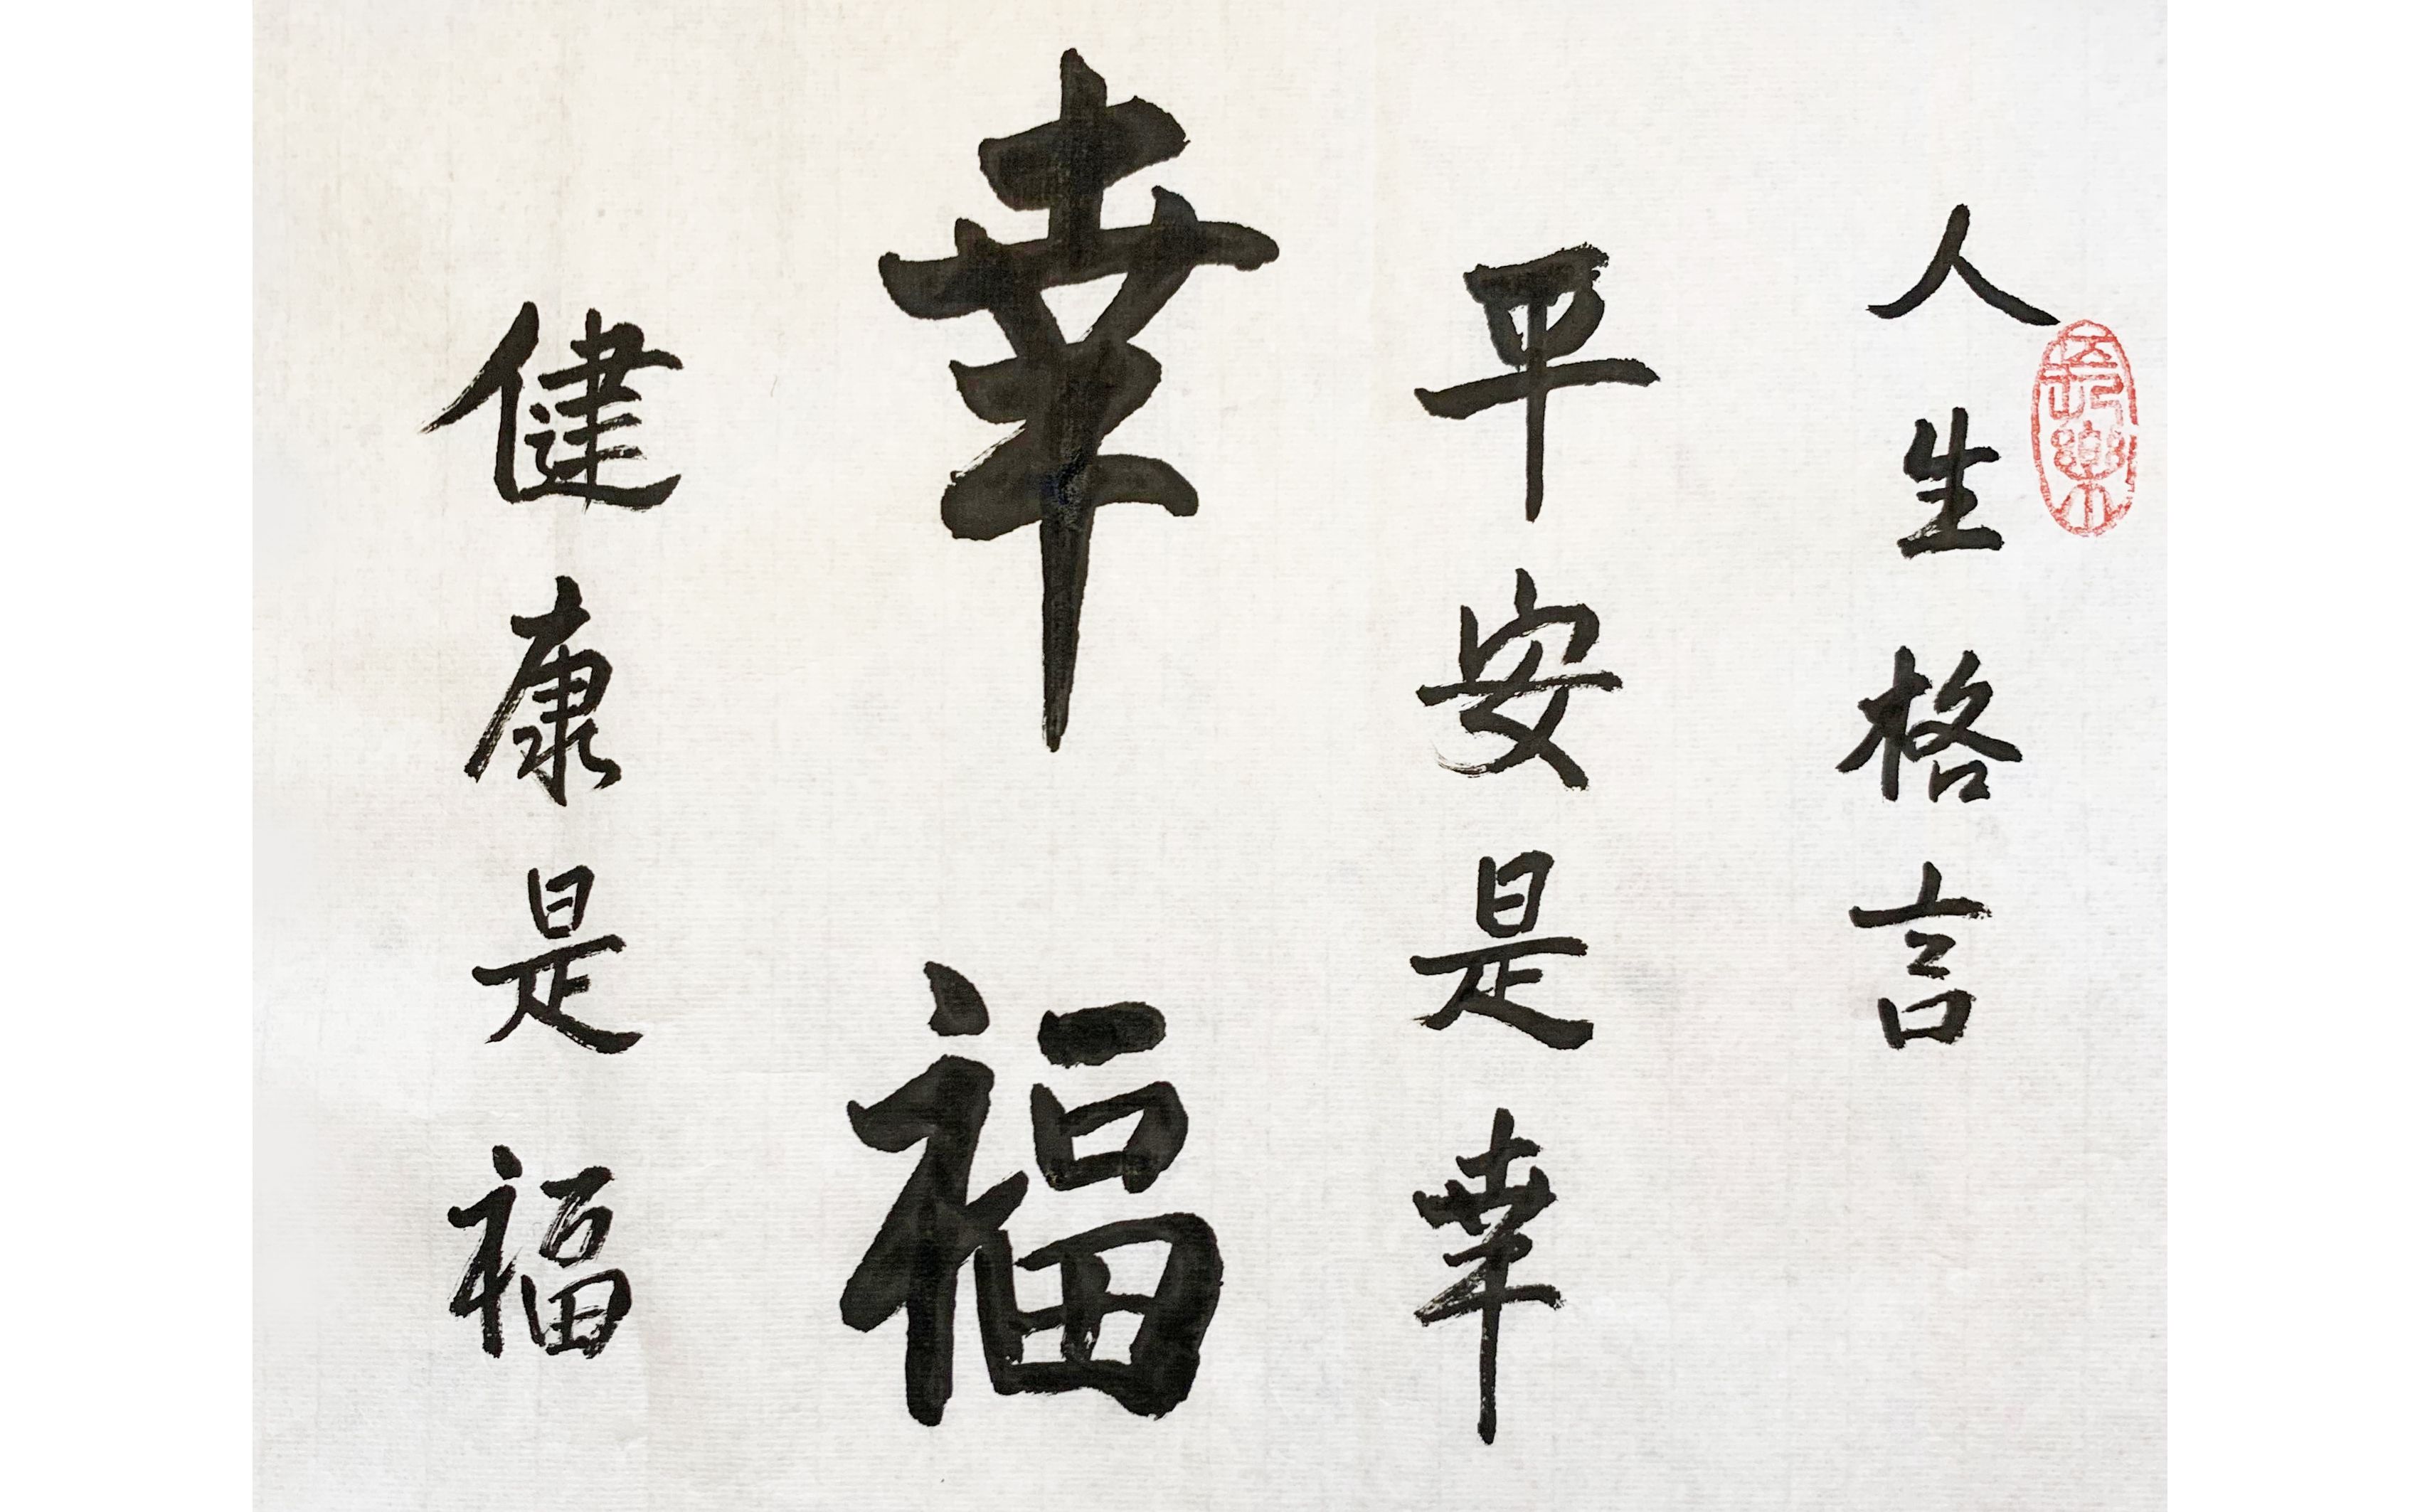 人生格言
長樂
平安是幸
幸福
健康是福